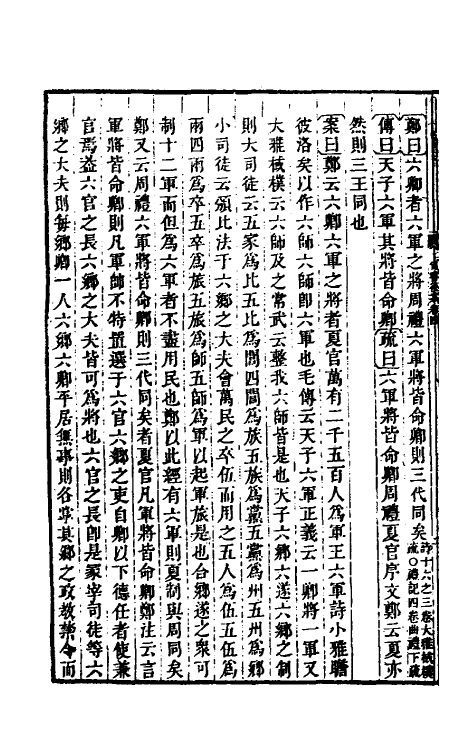 鄭曰六卿者六軍之將周禮六軍將皆命卿則三代同矣詩十六之三卷大雅棫樸疏〇禮記四卷曲禮下疏
傳曰天子六軍其將皆命卿疏曰六軍將皆命卿周禮夏官序文鄭云夏亦
然則三王同也
案曰鄭云六卿六軍之將者夏官萬有二千五百人爲軍王六軍詩小雅瞻
彼洛矣以作六師六師卽六軍也毛傳云天子六軍正義云一卿將一軍又
大雅棫樸云六師及之常武云整我六師皆是也天子六鄉六遂六鄉之制
則大司徒云五家爲比五比爲閭四閭爲族五族爲黨五黨爲州五州爲鄉
小司徒云頒比法于六鄉之大夫會萬民之卒伍而用之五人爲伍五伍爲
兩四兩爲卒五卒爲旅五旅爲師五師爲軍以起軍旅是也合鄉遂之衆可
制十二軍而但爲六軍者不盡用民也鄭以此經有六軍則夏制與周同矣
鄭又云周禮六軍將皆命卿則三代同矣者夏官凡軍將皆命卿鄭注云言
軍將皆命卿則凡軍帥不特置選于六官六鄉之吏自卿以下德任者使兼
官焉益六官之長六鄉之大夫皆可爲將也六官之長卽是冢宰司徒等六
鄉之大夫則每鄉卿一人六鄉六卿平居無事則各掌其鄉之政敎禁令而